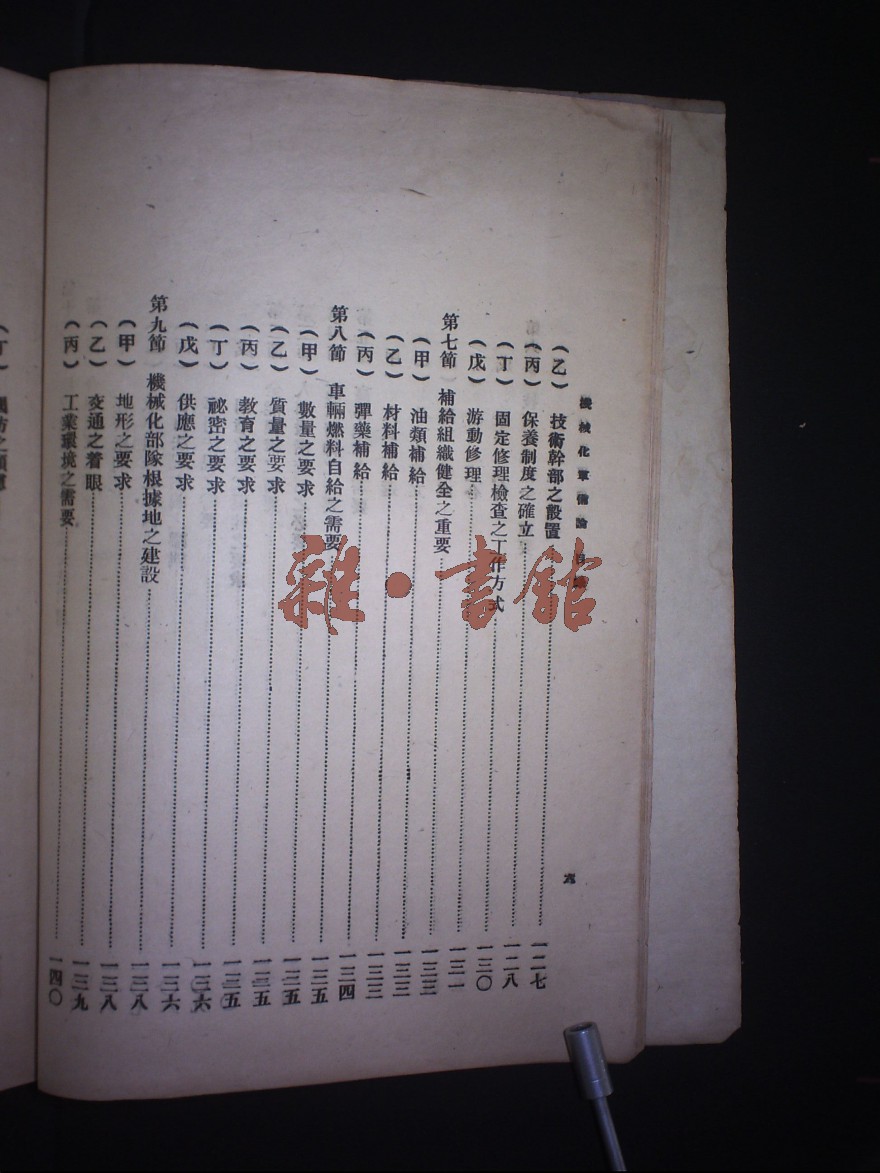 機械化軍備論 目錄 六
（乙） 技術幹部之設置……一二七
（丙） 保養制度之確立……一二八
（丁） 固定修理檢查之工作方式……一三〇
（戊） 游動修理……一三一
第七節 補給組織健全之重要……一三三
（甲） 油類補給……一三三
（乙） 材料補給……一三三
（丙） 彈藥補給……一三四
第八節 車輛燃料自給之需要……一三五
（甲） 數量之要求……一三五
（乙） 質量之要求……一三五
（丙） 教育之要求……一三五
（丁） 祕密之要求……一三六
（戊） 供應之要求……一三六
第九節 機械化部隊根據地之建設……一三八
（甲） 地形之要求……一三八
（乙） 交通之着眼……一三九
（丙） 工業環境之需要……一四〇
雜·書館